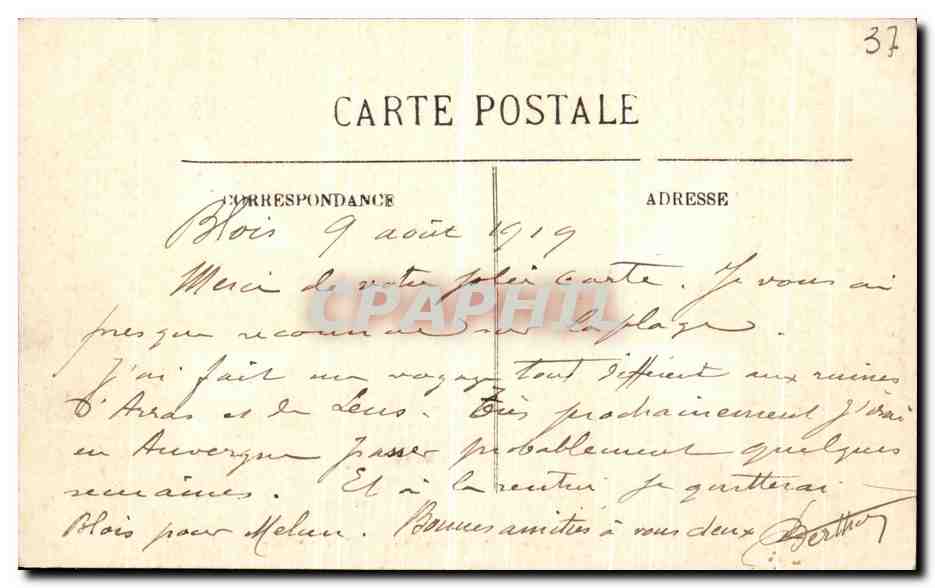 37
CARTE POSTALE
CORRESPONDANCE ADRESSE
Blois 9 août 1919
Merci de votre jolie carte. Je vous ai
presque reconnue sur la plage.
J'ai fait un voyage tout différent aux ruines
d'Arras et de Lens. Très prochainement j'irai
en Auvergne passer probablement quelques
semaines. Et à la rentrée je quitterai
Blois pour Melun. Bonnes amitiés à vous deux
CPAPHIL